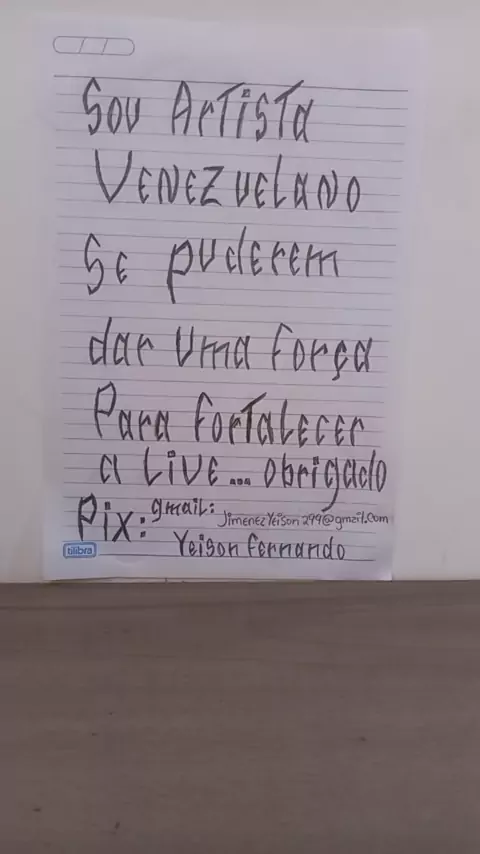 Sou Artista
Venezuelano
Se puderem
dar uma força
Para fortalecer
a Live... obrigado
Pix: gmail: JimenezYeison299@gmail.com
Yeison fernando
tilibra